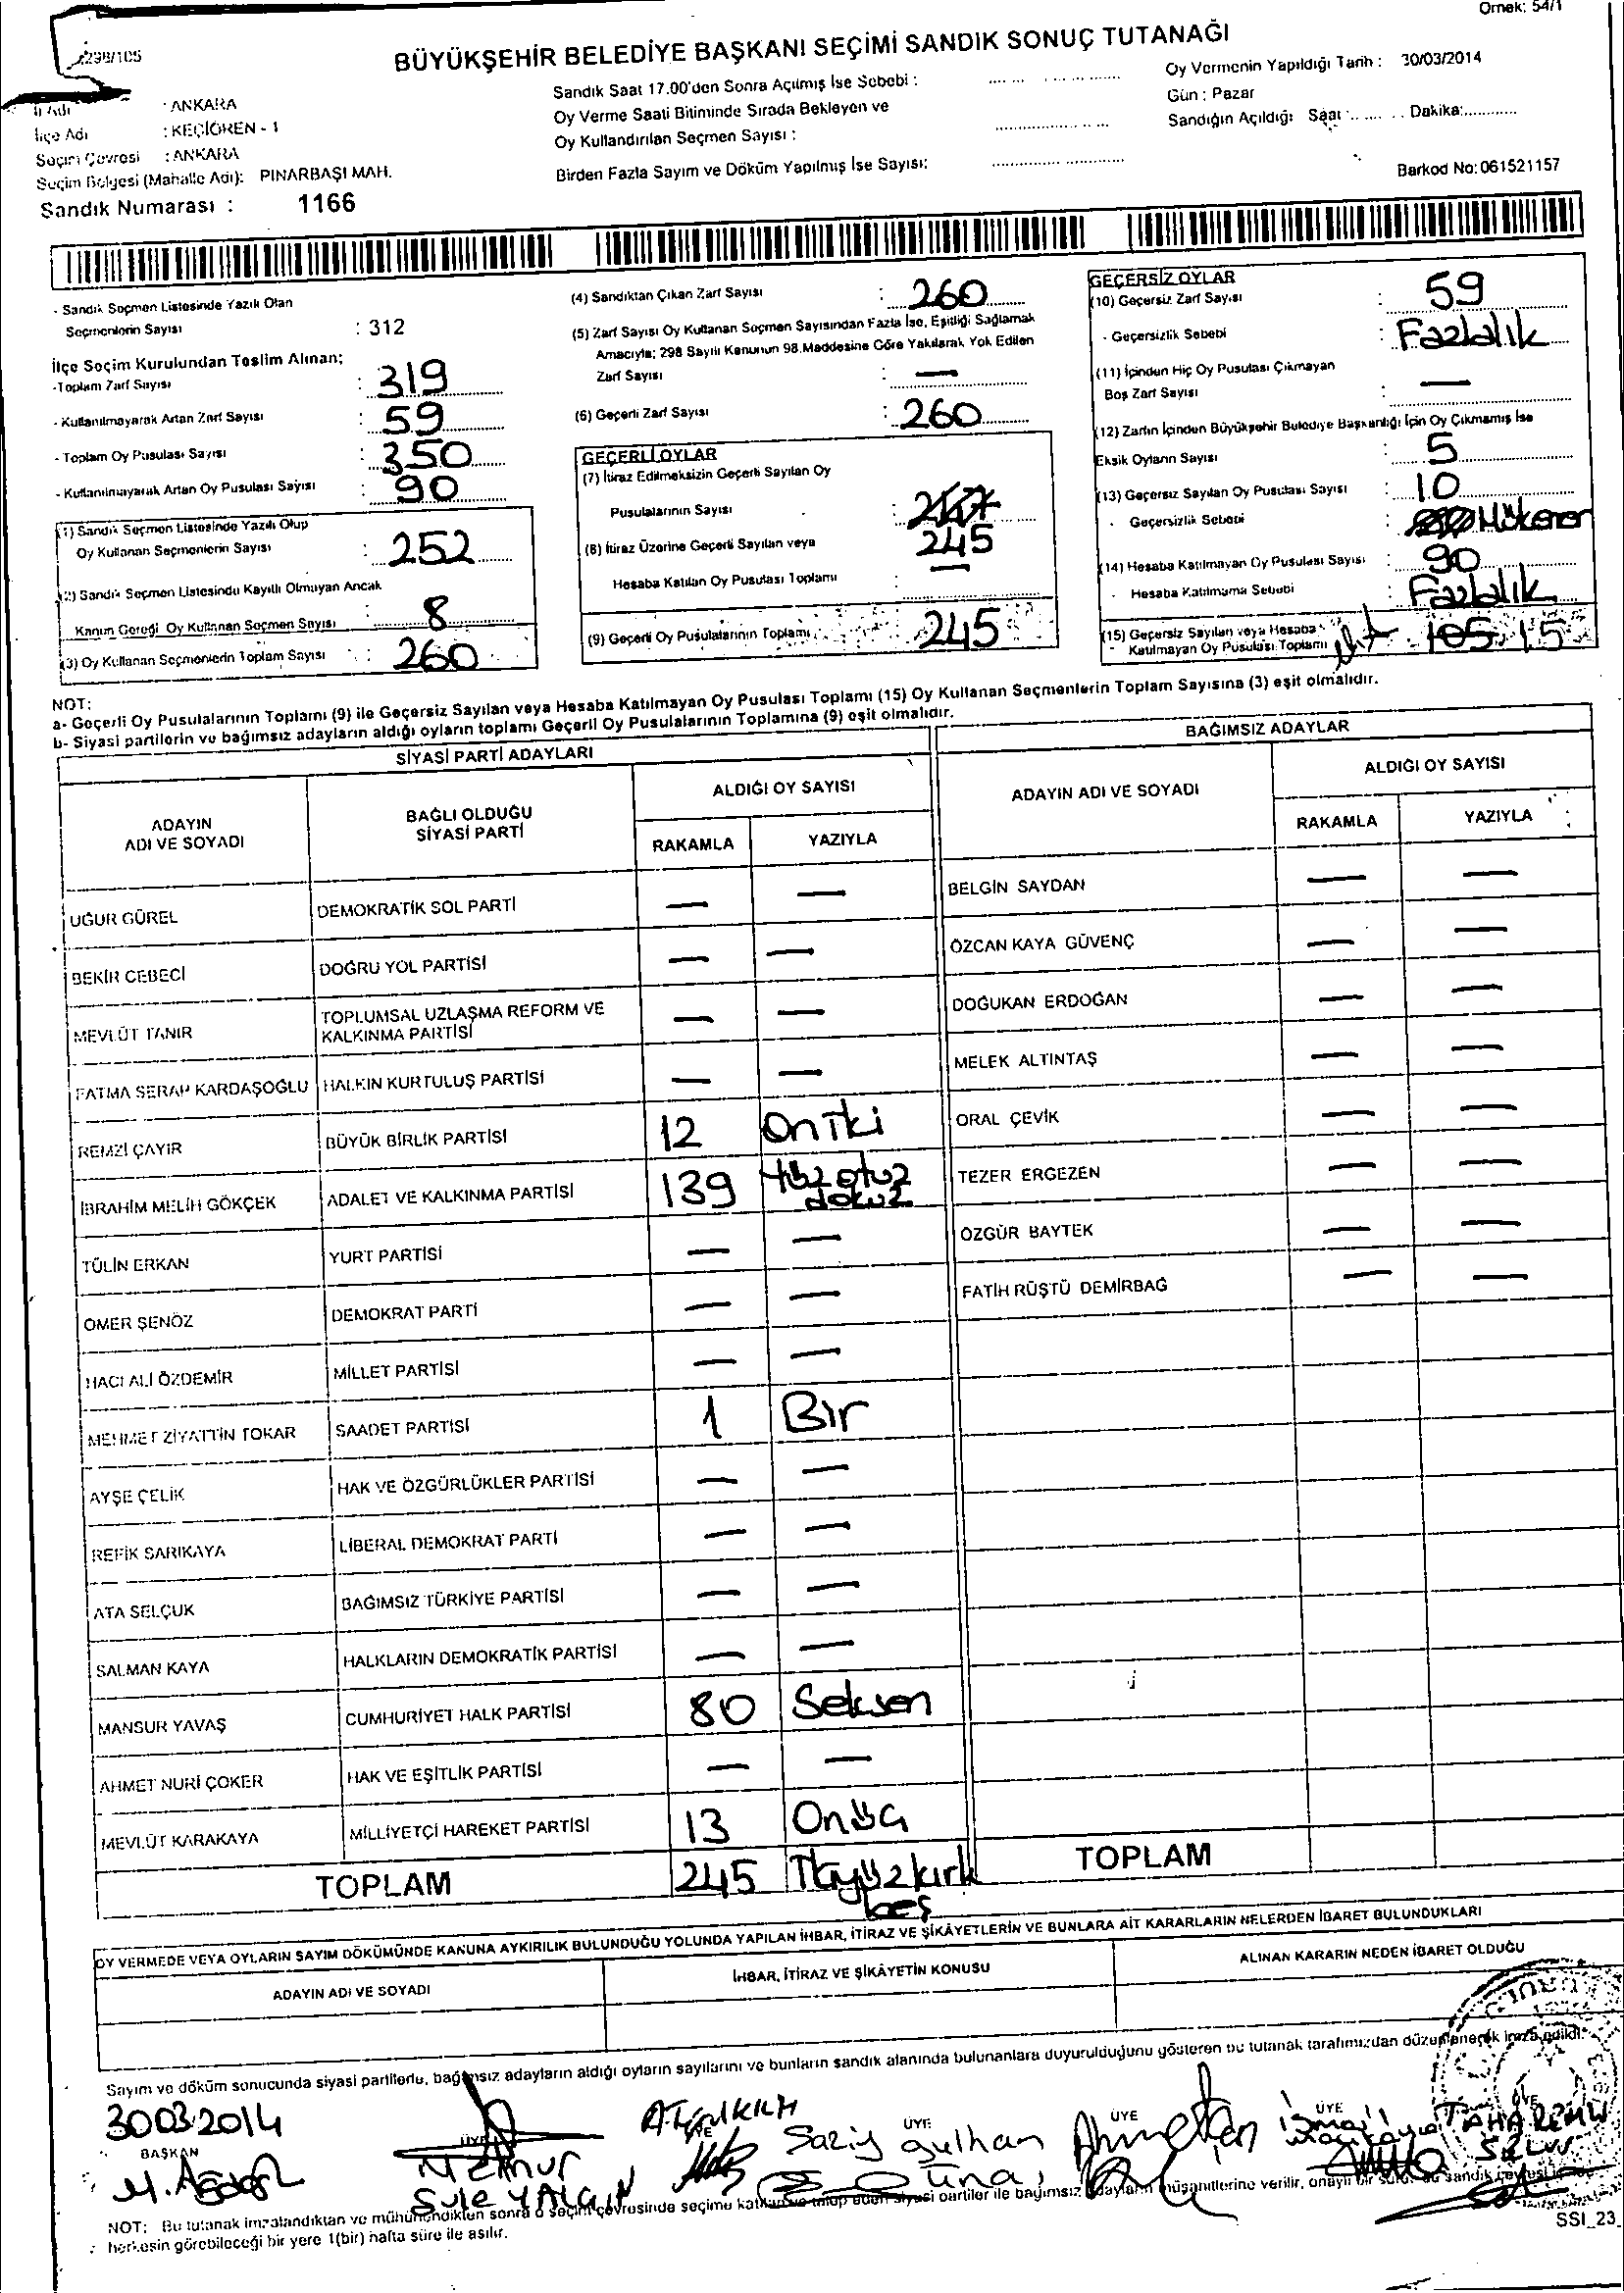 Örnek: 54/1
298/105
BÜYÜKŞEHİR BELEDİYE BAŞKANI SEÇİMİ SANDIK SONUÇ TUTANAĞI
İl Adı : ANKARA
İlçe Adı : KEÇİÖREN - 1
Seçim Çevresi : ANKARA
Seçim Bölgesi (Mahalle Adı): PINARBAŞI MAH.
Sandık Numarası : 1166
Sandık Saat 17.00'den Sonra Açılmış İse Sebebi :
Oy Verme Saati Bitiminde Sırada Bekleyen ve
Oy Kullandırılan Seçmen Sayısı :
Birden Fazla Sayım ve Döküm Yapılmış İse Sayısı:
Oy Vermenin Yapıldığı Tarih : 30/03/2014
Gün : Pazar
Sandığın Açıldığı Saat : Dakika:
Barkod No: 061521157
- Sandık Seçmen Listesinde Yazılı Olan
Seçmenlerin Sayısı : 312
İlçe Seçim Kurulundan Teslim Alınan;
-Toplam Zarf Sayısı : 319
- Kullanılmayarak Artan Zarf Sayısı : 59
- Toplam Oy Pusulası Sayısı : 350
- Kullanılmayarak Artan Oy Pusulası Sayısı : 90
(1) Sandık Seçmen Listesinde Yazılı Olup
Oy Kullanan Seçmenlerin Sayısı : 252
(2) Sandık Seçmen Listesinde Kayıtlı Olmıyan Ancak
Kanun Gereği Oy Kullanan Seçmen Sayısı 8
(3) Oy Kullanan Seçmenlerin Toplam Sayısı : 260
(4) Sandıktan Çıkan Zarf Sayısı : 260
(5) Zarf Sayısı Oy Kullanan Seçmen Sayısından Fazla İse, Eşitliği Sağlamak
Amacıyla; 298 Sayılı Kanunun 98.Maddesine Göre Yakılarak Yok Edilen
Zarf Sayısı : —
(6) Geçerli Zarf Sayısı : 260
GEÇERLİ OYLAR
(7) İtiraz Edilmeksizin Geçerli Sayılan Oy
Pusulalarının Sayısı : 245
(8) İtiraz Üzerine Geçerli Sayılan veya
Hesaba Katılan Oy Pusulası Toplamı : —
(9) Geçerli Oy Pusulalarının Toplamı : 245
GEÇERSİZ OYLAR
(10) Geçersiz Zarf Sayısı : 59
- Geçersizlik Sebebi : Fazlalık
(11) İçinden Hiç Oy Pusulası Çıkmayan
Boş Zarf Sayısı : —
(12) Zarfın İçinden Büyükşehir Belediye Başkanlığı İçin Oy Çıkmamış İse
Eksik Oyların Sayısı : 5
(13) Geçersiz Sayılan Oy Pusulası Sayısı : 10
- Geçersizlik Sebebi : Mükerrer
(14) Hesaba Katılmayan Oy Pusulası Sayısı : 90
- Hesaba Katılmama Sebebi : Fazlalık
(15) Geçersiz Sayılan veya Hesaba
Katılmayan Oy Pusulası Toplamı 105 15
NOT:
a- Geçerli Oy Pusulalarının Toplamı (9) ile Geçersiz Sayılan veya Hesaba Katılmayan Oy Pusulası Toplamı (15) Oy Kullanan Seçmenlerin Toplam Sayısına (3) eşit olmalıdır.
b- Siyasi partilerin ve bağımsız adayların aldığı oyların toplamı Geçerli Oy Pusulalarının Toplamına (9) eşit olmalıdır.
SİYASİ PARTİ ADAYLARI
BAĞIMSIZ ADAYLAR
ADAYIN ADI VE SOYADI
BAĞLI OLDUĞU SİYASİ PARTİ
ALDIĞI OY SAYISI
RAKAMLA YAZIYLA
ADAYIN ADI VE SOYADI
ALDIĞI OY SAYISI
RAKAMLA YAZIYLA
UĞUR GÜREL DEMOKRATİK SOL PARTİ — — BELGİN SAYDAN — —
BEKİR CEBECİ DOĞRU YOL PARTİSİ — — ÖZCAN KAYA GÜVENÇ — —
MEVLÜT TANIR TOPLUMSAL UZLAŞMA REFORM VE KALKINMA PARTİSİ — — DOĞUKAN ERDOĞAN — —
FATMA SERAP KARDAŞOĞLU HALKIN KURTULUŞ PARTİSİ — — MELEK ALTINTAŞ — —
REMZİ ÇAYIR BÜYÜK BİRLİK PARTİSİ 12 Oniki ORAL ÇEVİK — —
İBRAHİM MELİH GÖKÇEK ADALET VE KALKINMA PARTİSİ 139 Yüzotuz dokuz TEZER ERGEZEN — —
TÜLİN ERKAN YURT PARTİSİ — — ÖZGÜR BAYTEK — —
ÖMER ŞENÖZ DEMOKRAT PARTİ — — FATİH RÜŞTÜ DEMİRBAĞ — —
HACI ALİ ÖZDEMİR MİLLET PARTİSİ — —
MEHMET ZİYATTİN TOKAR SAADET PARTİSİ 1 Bir
AYŞE ÇELİK HAK VE ÖZGÜRLÜKLER PARTİSİ — —
REFİK SARIKAYA LİBERAL DEMOKRAT PARTİ — —
ATA SELÇUK BAĞIMSIZ TÜRKİYE PARTİSİ — —
SALMAN KAYA HALKLARIN DEMOKRATİK PARTİSİ — —
MANSUR YAVAŞ CUMHURİYET HALK PARTİSİ 80 Seksen
AHMET NURİ ÇOKER HAK VE EŞİTLİK PARTİSİ — —
MEVLÜT KARAKAYA MİLLİYETÇİ HAREKET PARTİSİ 13 Onüç
TOPLAM 245 İkiyüzkırk beş TOPLAM
OY VERMEDE VEYA OYLARIN SAYIM DÖKÜMÜNDE KANUNA AYKIRILIK BULUNDUĞU YOLUNDA YAPILAN İHBAR, İTİRAZ VE ŞİKÂYETLERİN VE BUNLARA AİT KARARLARIN NELERDEN İBARET BULUNDUKLARI
ADAYIN ADI VE SOYADI İHBAR, İTİRAZ VE ŞİKÂYETİN KONUSU ALINAN KARARIN NEDEN İBARET OLDUĞU
Sayım ve döküm sonucunda siyasi partilerle, bağımsız adayların aldığı oyların sayılarını ve bunların sandık alanında bulunanlara duyurulduğunu gösteren bu tutanak tarafımızdan düzenlenerek imza edildi.
30032014
BAŞKAN ÜYE ÜYE ÜYE ÜYE ÜYE
Şule YALÇIN
NOT: Bu tutanak imzalandıktan ve mühürlendikten sonra o seçim çevresinde seçime katılan ve talep eden siyasi partiler ile bağımsız adayların müşahitlerine verilir, onaylı bir sureti de sandık çevresinde
herkesin görebileceği bir yere 1(bir) hafta süre ile asılır.
SSI_23